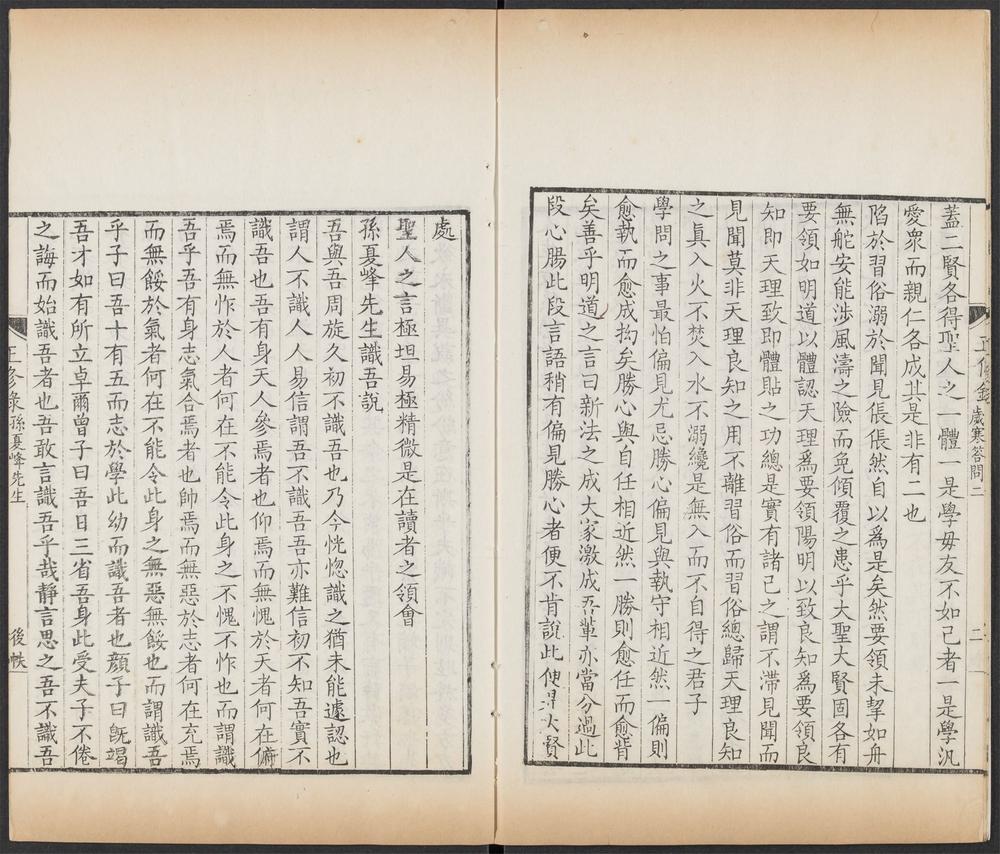 正修錄 歲寒答問二 二
蓋二賢各得聖人之一體一是學毋友不如己者一是學汎
愛衆而親仁各成其是非有二也
陷於習俗溺於聞見倀倀然自以爲是矣然要領未挈如舟
無舵安能涉風濤之險而免傾覆之患乎大聖大賢固各有
要領如明道以體認天理爲要領陽明以致良知爲要領良
知即天理致即體貼之功總是實有諸己之謂不滯見聞而
見聞莫非天理良知之用不離習俗而習俗總歸天理良知
之眞入火不焚入水不溺纔是無入而不自得之君子
學問之事最怕偏見尤忌勝心偏見與執守相近然一偏則
愈執而愈成拘矣勝心與自任相近然一勝則愈任而愈背
矣善乎明道之言曰新法之成大家激成吾輩亦當分過此
段心腸此段言語稍有偏見勝心者便不肯說此便是大賢
處
聖人之言極坦易極精微是在讀者之領會
孫夏峰先生識吾說
吾與吾周旋久初不識吾也乃今恍惚識之猶未能遽認也
謂人不識人人易信謂吾不識吾吾亦難信初不知吾實不
識吾也吾有身天人參焉者也仰焉而無愧於天者何在俯
焉而無怍於人者何在不能令此身之不愧不怍也而謂識
吾乎吾有身志氣合焉者也帥焉而無惡於志者何在充焉
而無餒於氣者何在不能令此身之無惡無餒也而謂識吾
乎子曰吾十有五而志於學此幼而識吾者也顏子曰旣竭
吾才如有所立卓爾曾子曰吾日三省吾身此受夫子不倦
之誨而始識吾者也吾敢言識吾乎哉靜言思之吾不識吾
正修錄 孫夏峰先生 後帙